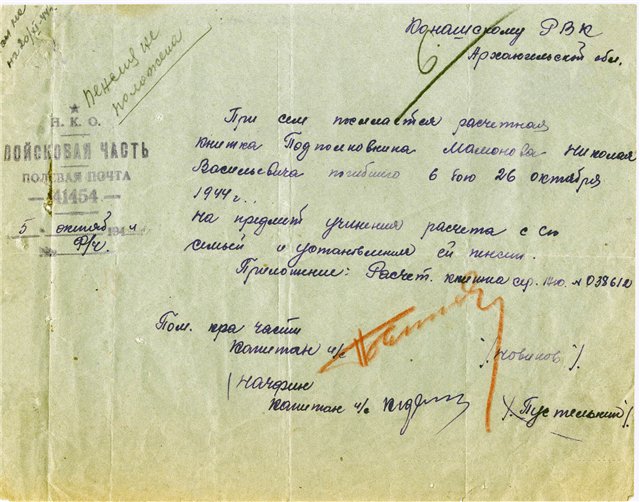 на 20/XI-44г.
Пенсия не
положена
Конашскому РВК
Архангельской обл.
Н. К. О.
ВОЙСКОВАЯ ЧАСТЬ
ПОЛЕВАЯ ПОЧТА
— 41454 —
5 октяб 1944
№ Ф/Ч.
При сем посылается расчетная
книжка Подполковника Мамонова Николая
Васильевича погибшего в бою 26 октября
1944 г..
На предмет учинения расчета с
семьей и установления ей пенсии.
Приложение: Расчет. книжка сер. № 038612
Пом. к-ра части
Капитан и/с /Новиков/.
/НАЧФИН
Капитан и/с /. Пустельний/.